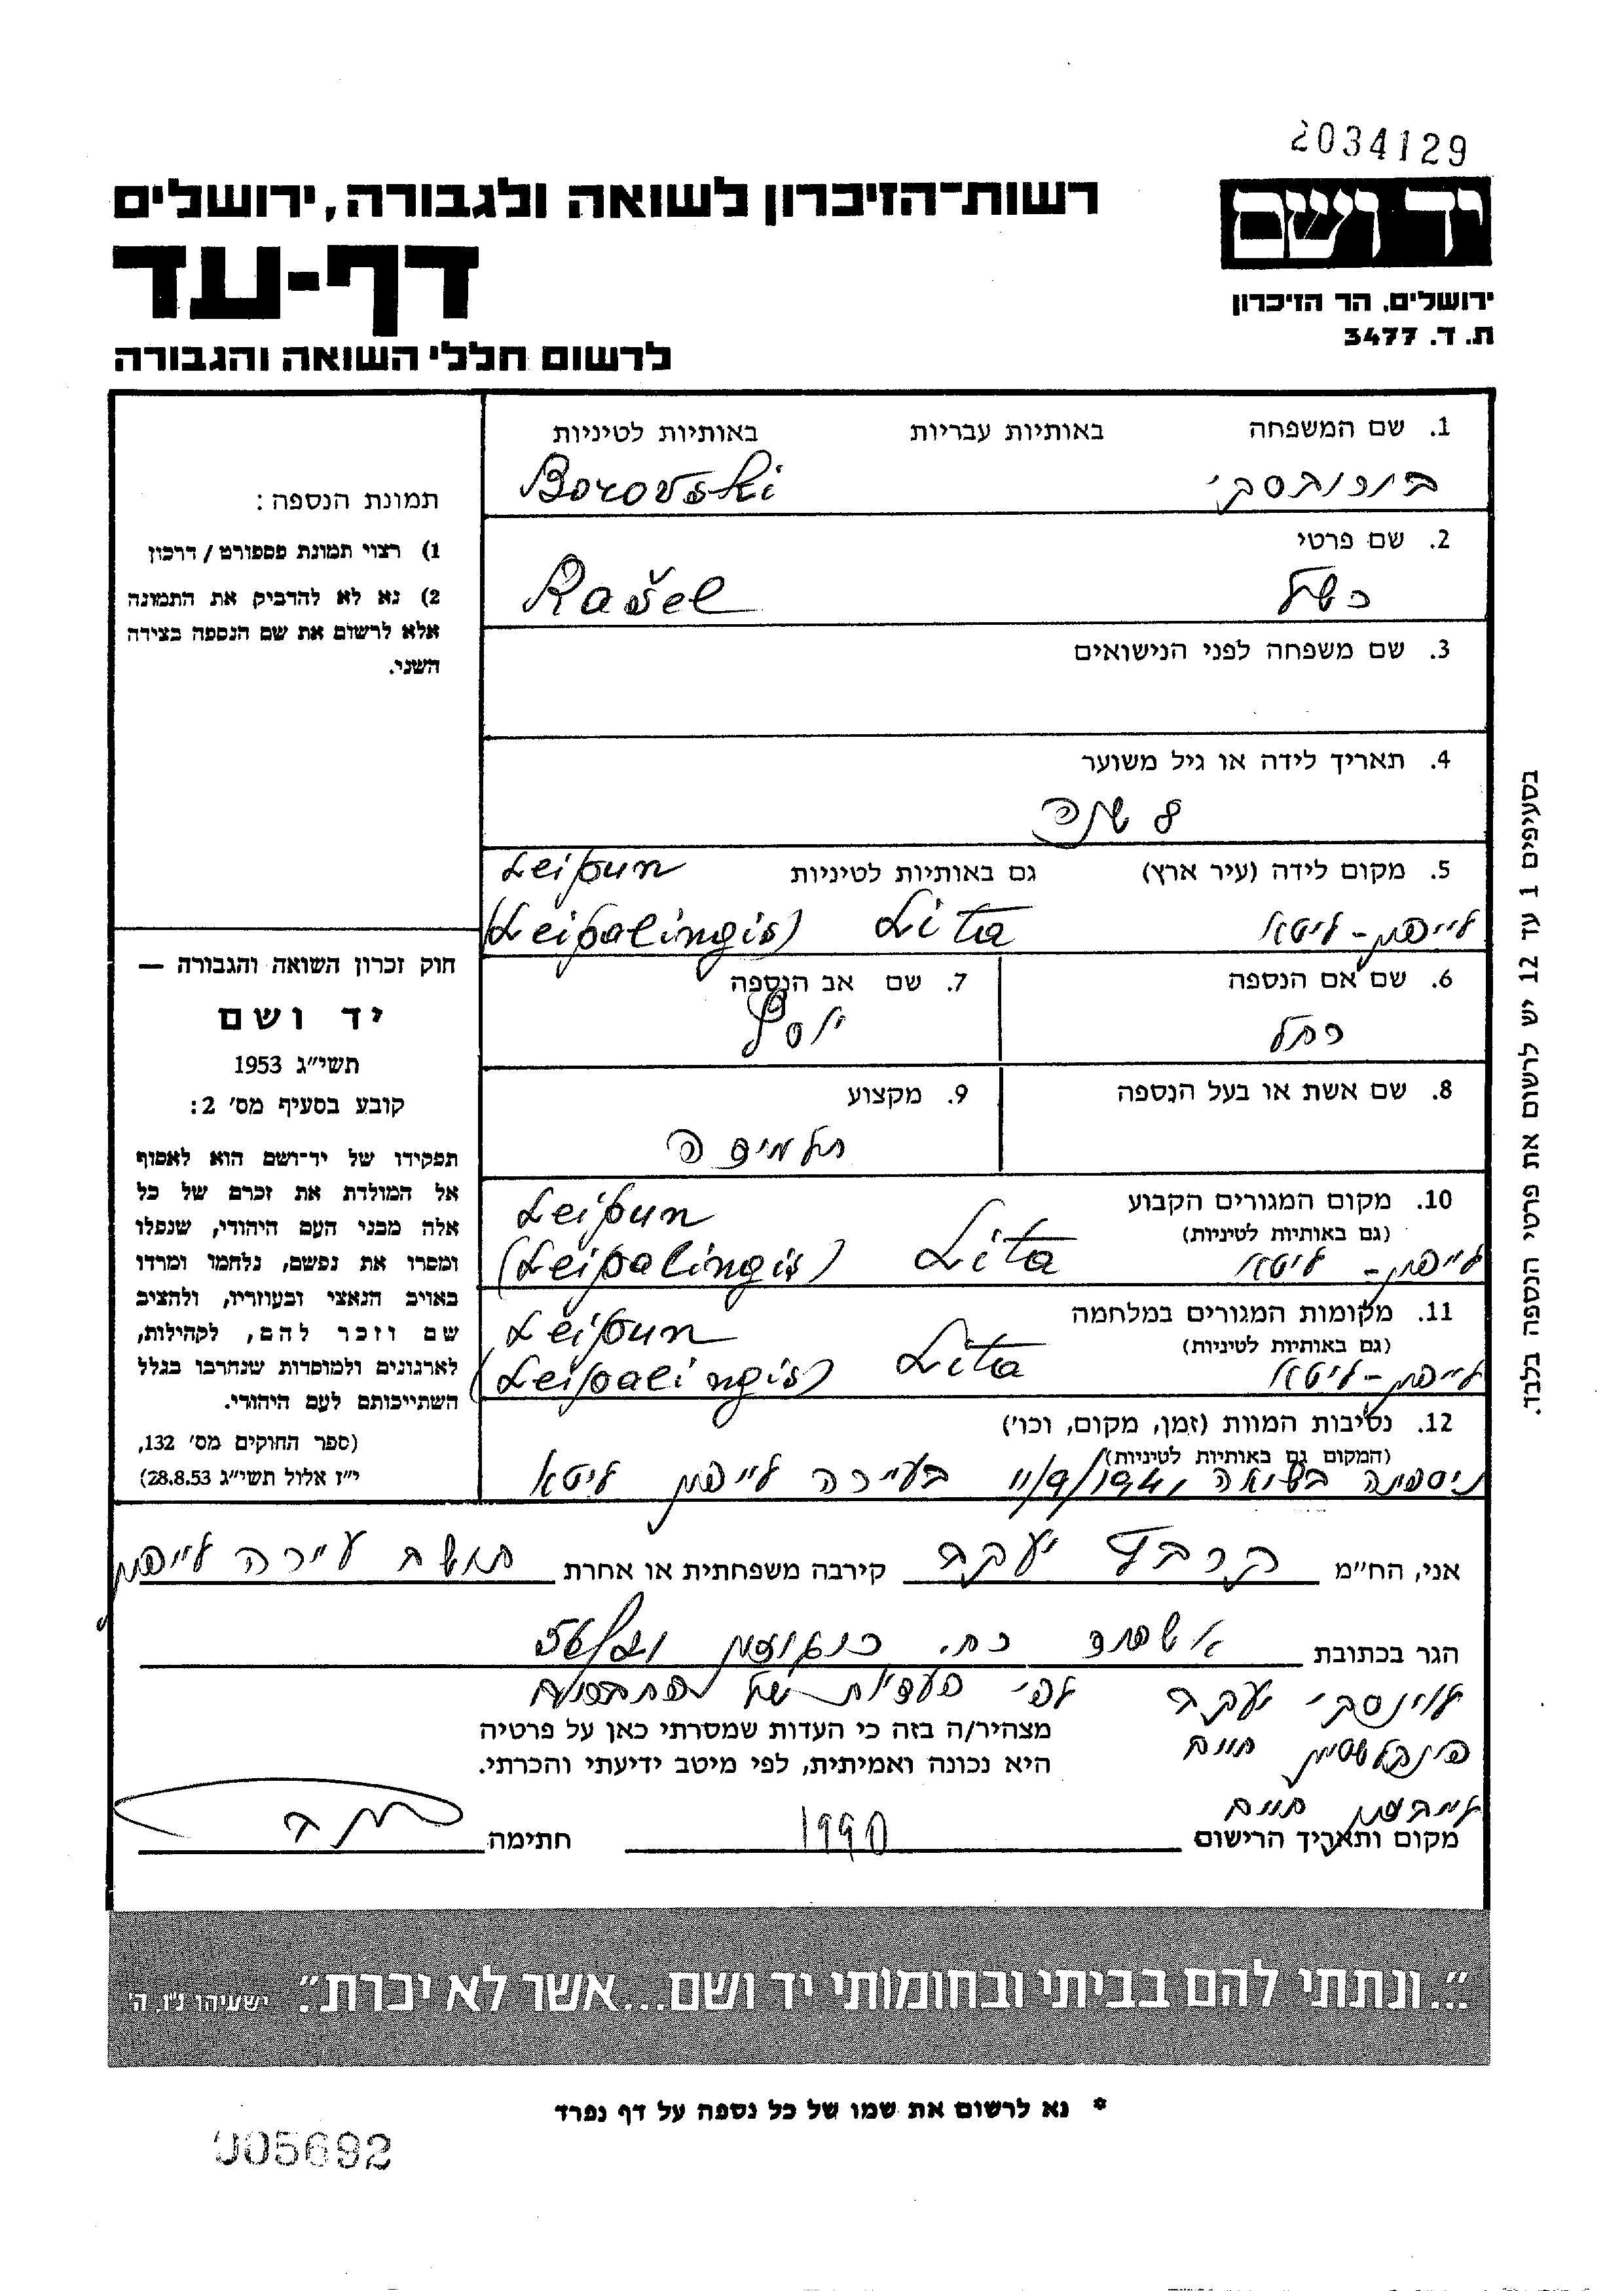 2034129
יד ושם
ירושלים, הר הזיכרון
ת. ד. 3477
רשות־הזיכרון לשואה ולגבורה, ירושלים
דף-עד
לרשום חללי השואה והגבורה
1. שם המשפחה באותיות עבריות באותיות לטיניות
בורובסקי Borovski
2. שם פרטי
רשל Rašel
3. שם משפחה לפני הנישואים
4. תאריך לידה או גיל משוער
8 שנה
5. מקום לידה (עיר ארץ) גם באותיות לטיניות Leipun
לייפון - ליטא Lita (Leipalingis)
6. שם אם הנספה
רחל
7. שם אב הנספה
יוסף
8. שם אשת או בעל הנספה
9. מקצוע
תלמידה
10. מקום המגורים הקבוע Leipun
(גם באותיות לטיניות)
לייפון - ליטא Lita (Leipalingis)
11. מקומות המגורים במלחמה Leipun
(גם באותיות לטיניות)
לייפון - ליטא Lita (Leipalingis)
12. נסיבות המוות (זמן, מקום, וכו')
(המקום גם באותיות לטיניות)
ניספתה בשואה 11/9/1941 בעיירה לייפון ליטא
תמונת הנספה:
1) רצוי תמונת פספורט / דרכון
2) נא לא להדביק את התמונה
אלא לרשום את שם הנספה בצידה
השני.
חוק זכרון השואה והגבורה —
יד ושם
תשי״ג 1953
קובע בסעיף מס' 2:
תפקידו של יד־ושם הוא לאסוף
אל המולדת את זכרם של כל
אלה מבני העם היהודי, שנפלו
ומסרו את נפשם, נלחמו ומרדו
באויב הנאצי ובעוזריו, ולהציב
שם וזכר להם, לקהילות,
לארגונים ולמוסדות שנחרבו בגלל
השתייכותם לעם היהודי.
(ספר החוקים מס' 132,
י״ז אלול תשי״ג 28.8.53)
בסעיפים 1 עד 12 יש לרשום את פרטי הנספה בלבד.
אני, הח״מ יעקב קירבה משפחתית או אחרת תושב עיירה לייפון
הגר בכתובת אשדוד רח. 56/21
לוינסקי יעקב לפי העדות של
פינקלשטיין חיים
מצהיר/ה בזה כי העדות שמסרתי כאן על פרטיה
היא נכונה ואמיתית, לפי מיטב ידיעתי והכרתי.
חיים
מקום ותאריך הרישום 1990 חתימה
״...ונתתי להם בביתי ובחומותי יד ושם...אשר לא יכרת״. ישעיהו נ״ו, ה'
* נא לרשום את שמו של כל נספה על דף נפרד
005692